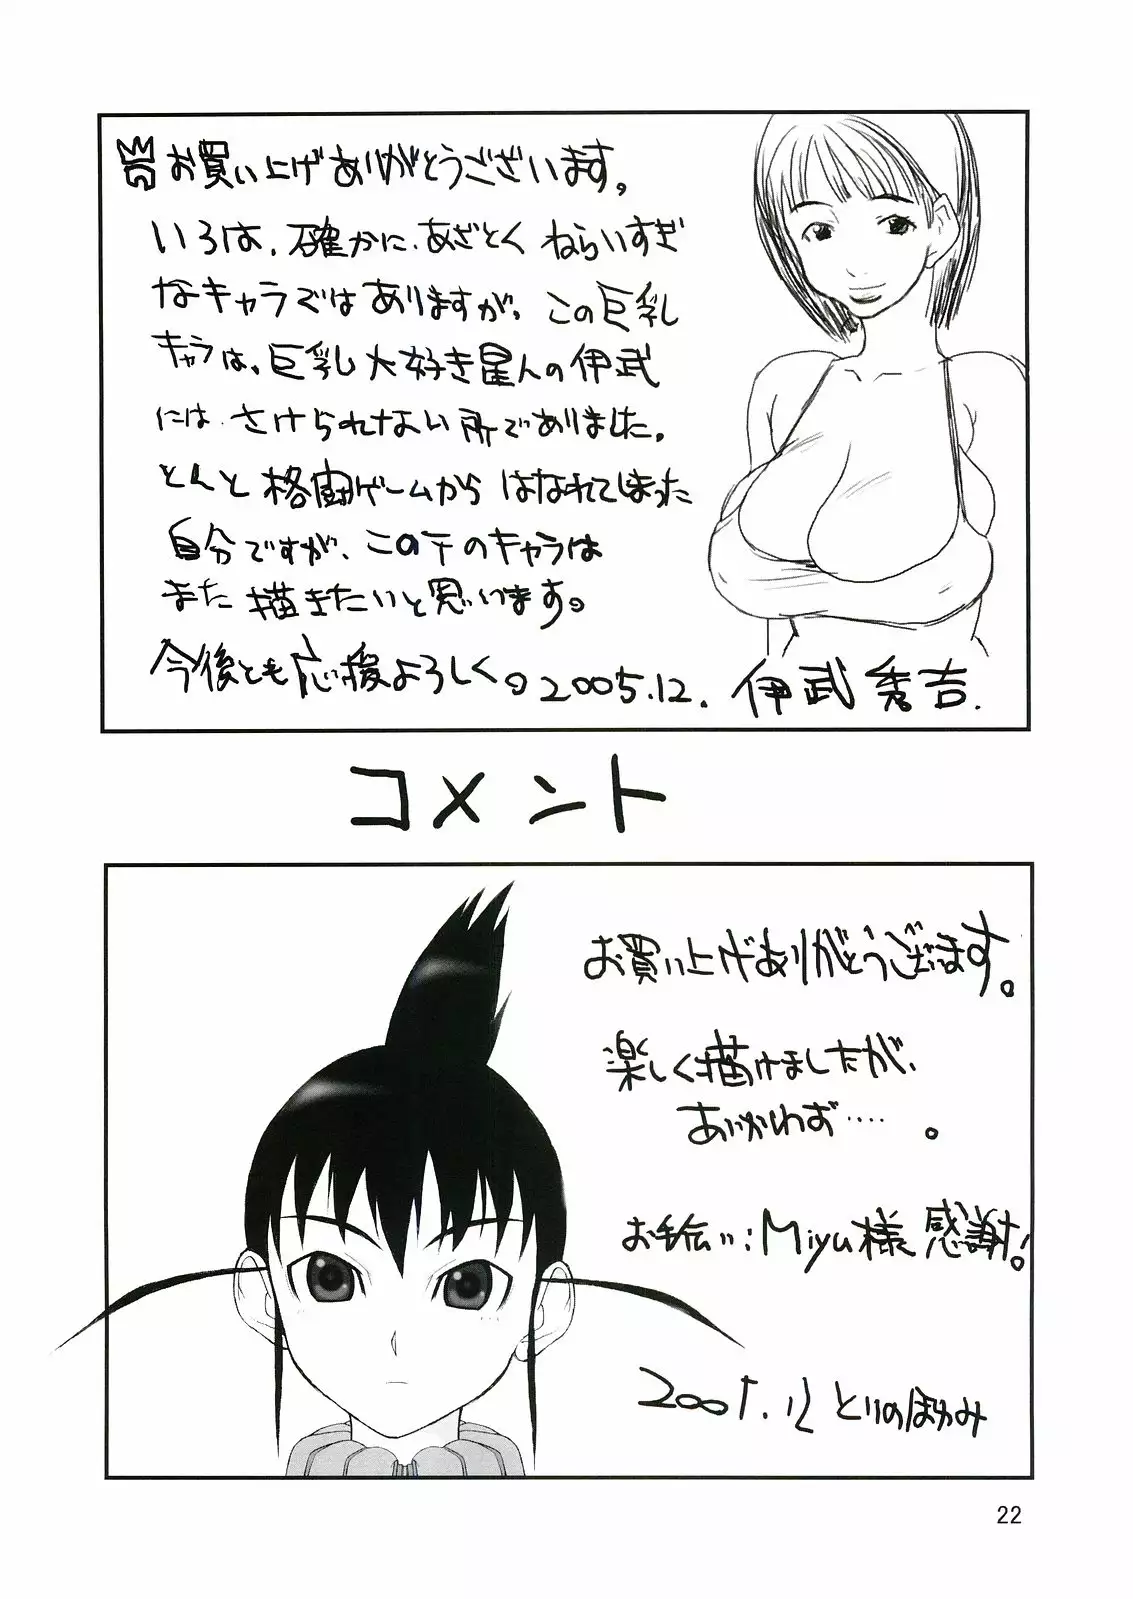 お買い上げありがとうございます。
いろは、確かに、あざとくねらいすぎ
なキャラではありますが、この巨乳
キャラは、巨乳大好き星人の伊武
には、さけられない所でありました。
とんと格闘ゲームからはなれてしまった
自分ですが、このテのキャラは
また描きたいと思います。
今後とも応援よろしく。2005.12. 伊武秀吉.
コメント
お買い上げありがとうございます。
楽しく描けましたが、
あいかわらず‥‥。
お手伝い:Miyu様 感謝!
2005.12 とりのほわみ
22